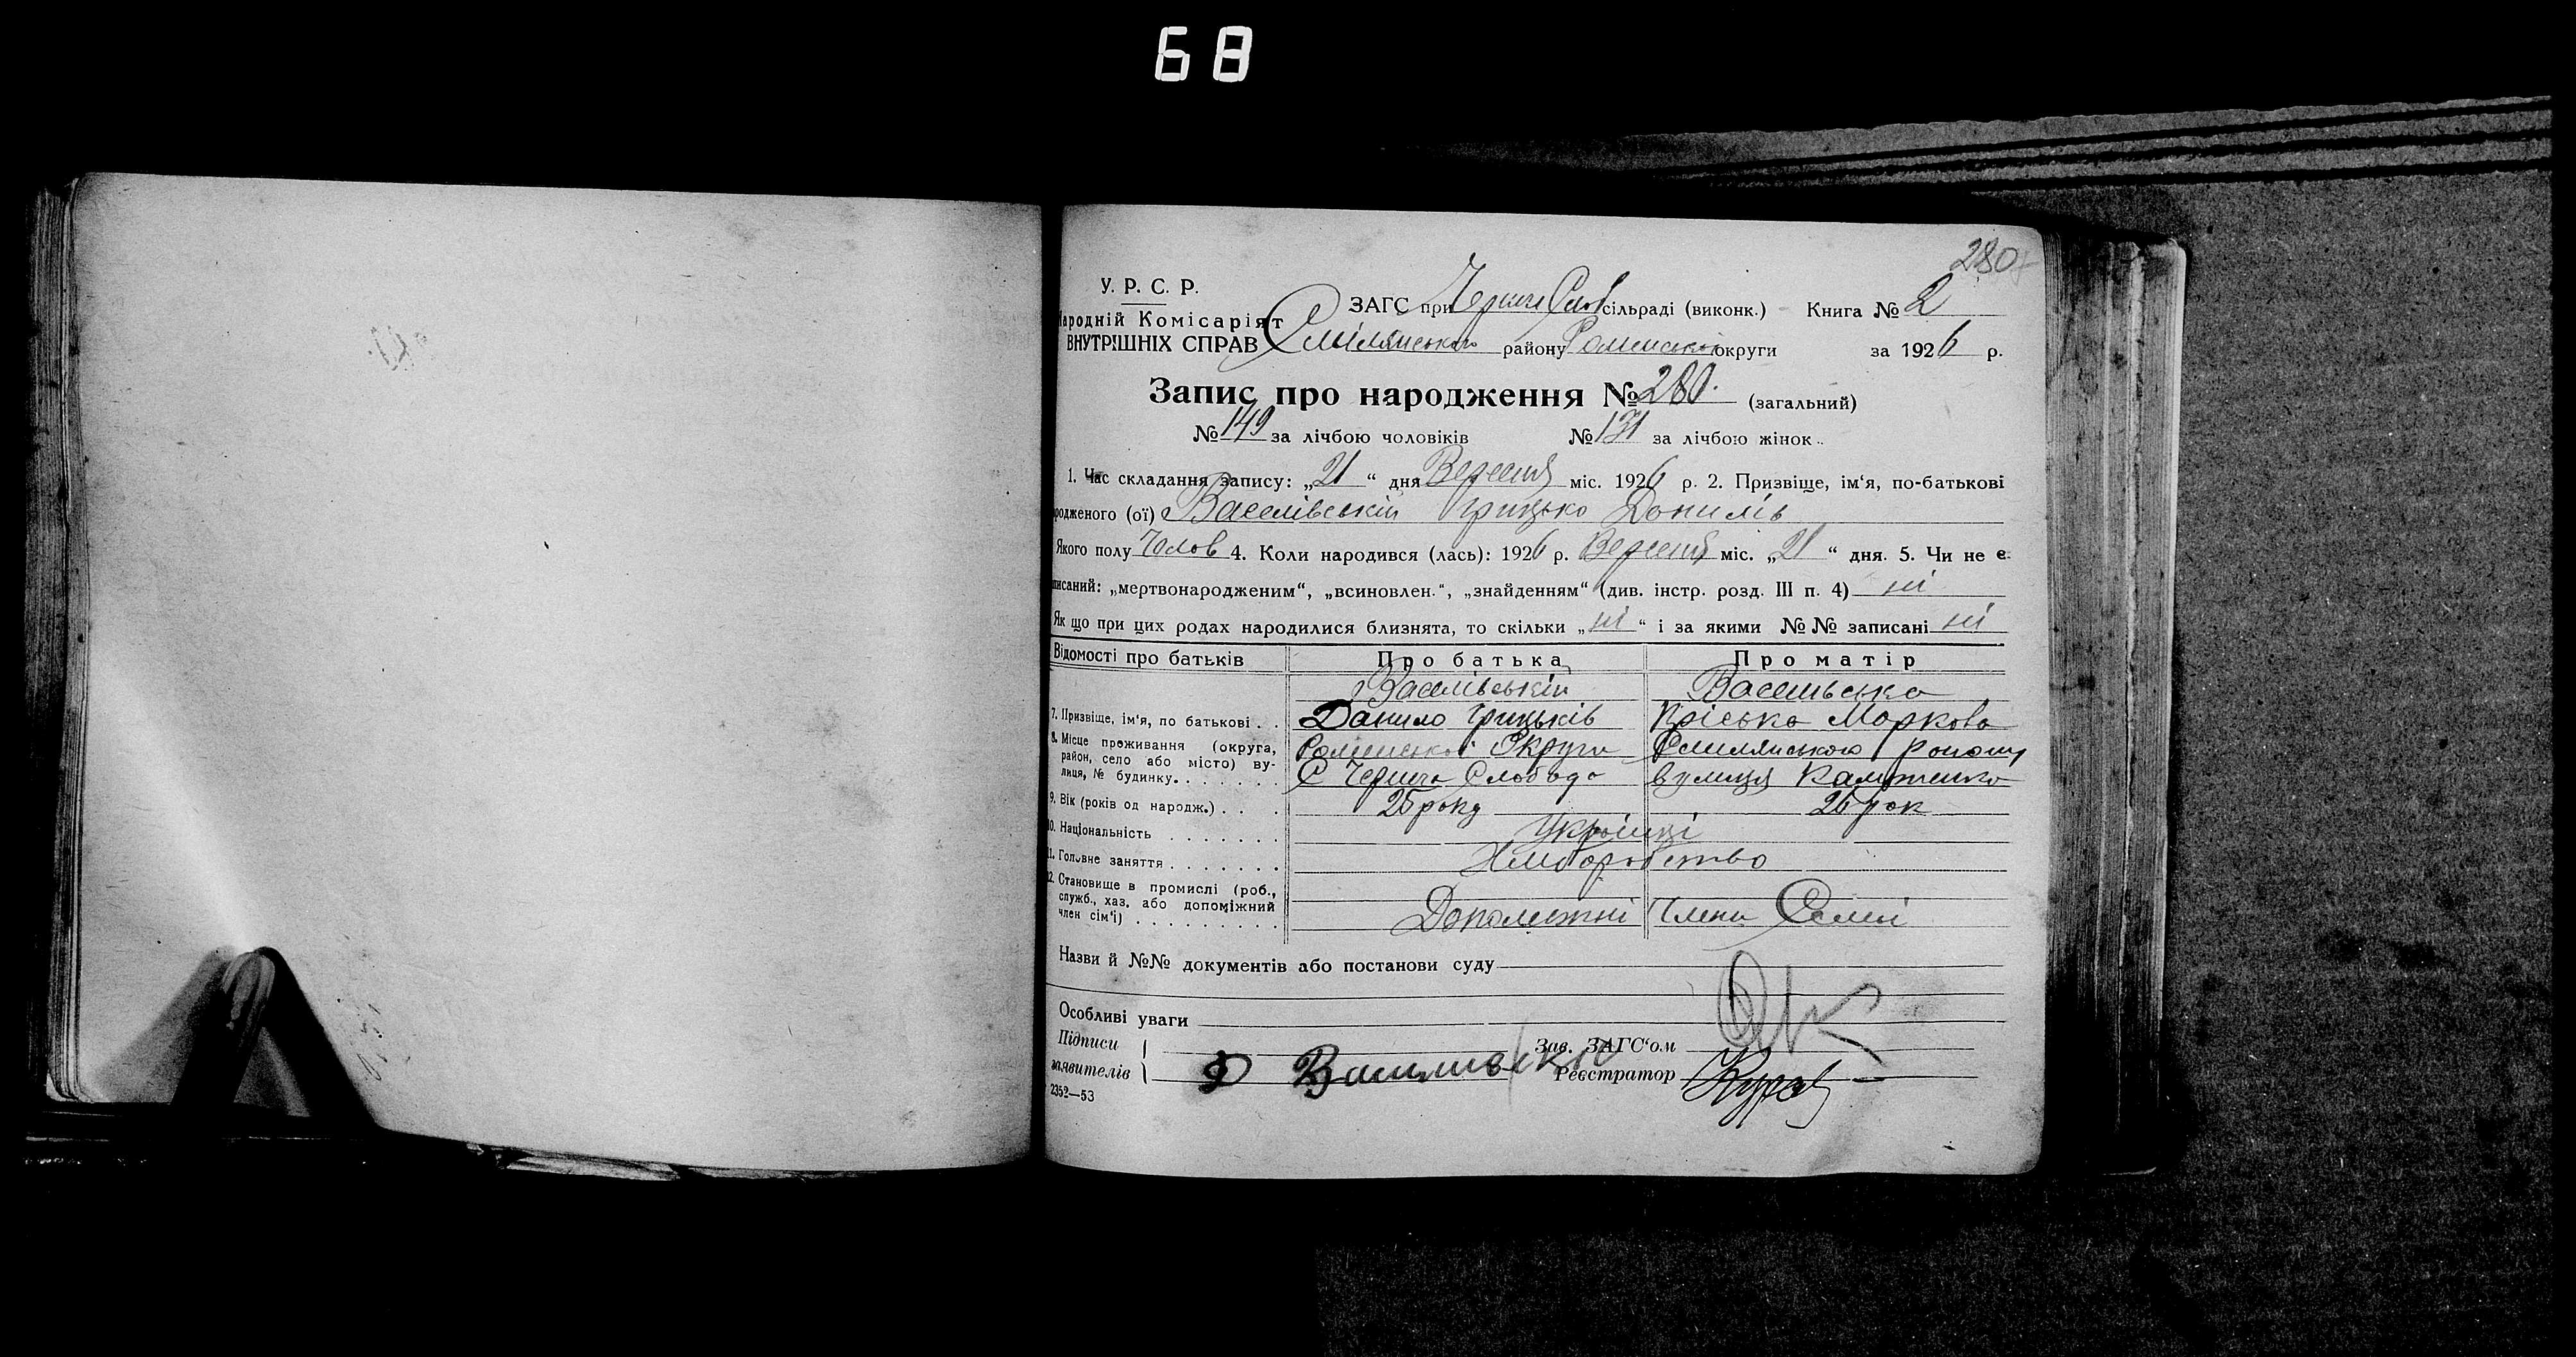 68
280
У. Р. С. Р.
Народній Комісаріят
ВНУТРІШНІХ СПРАВ
ЗАГС при Черечі Слоб сільраді (виконк.) Книга № 2
Смілянського району Роменської округи за 1926 р.
Запис про народження № 280. (загальний)
№ 149 за лічбою чоловіків № 131 за лічбою жінок
1. Час складання запису: „21“ дня Вересня міс. 1926 р. 2. Призвіще, ім‘я, по-батькові
родженого (ої) Васелівський Грицько Донилів
Якого полу Чолов 4. Коли народився (лась): 1926 р. Вересня міс. „21“ дня. 5. Чи не є
писаний: „мертвонародженим“, „всиновлен.“, „знайденням“ (див. інстр. розд. III п. 4) ні
Як що при цих родах народилися близнята, то скільки „ні“ і за якими №№ записані ні
Відомості про батьків Про батька Про матір
Васелівський
7. Призвіще, ім‘я, по батькові . . Данило Грицьків Пріська Маркова
8. Місце проживання (округа, район, село або місто) вулиця, № будинку. Роменської Округи Смилянського району
С Слобода вулиця
9. Вік (років од народж.) . . 25 року 26 рок
10. Національність Українці
11. Головне заняття Хлиборобство
12. Становище в промислі (роб., служб., хаз. або допоміжний член сім‘ї) Допоможні Члени Семьї
Назви й №№ документів або постанови суду
Особливі уваги
Підписи
заявителів
Зав. ЗАГС‘ом
Реєстратор
2352—53